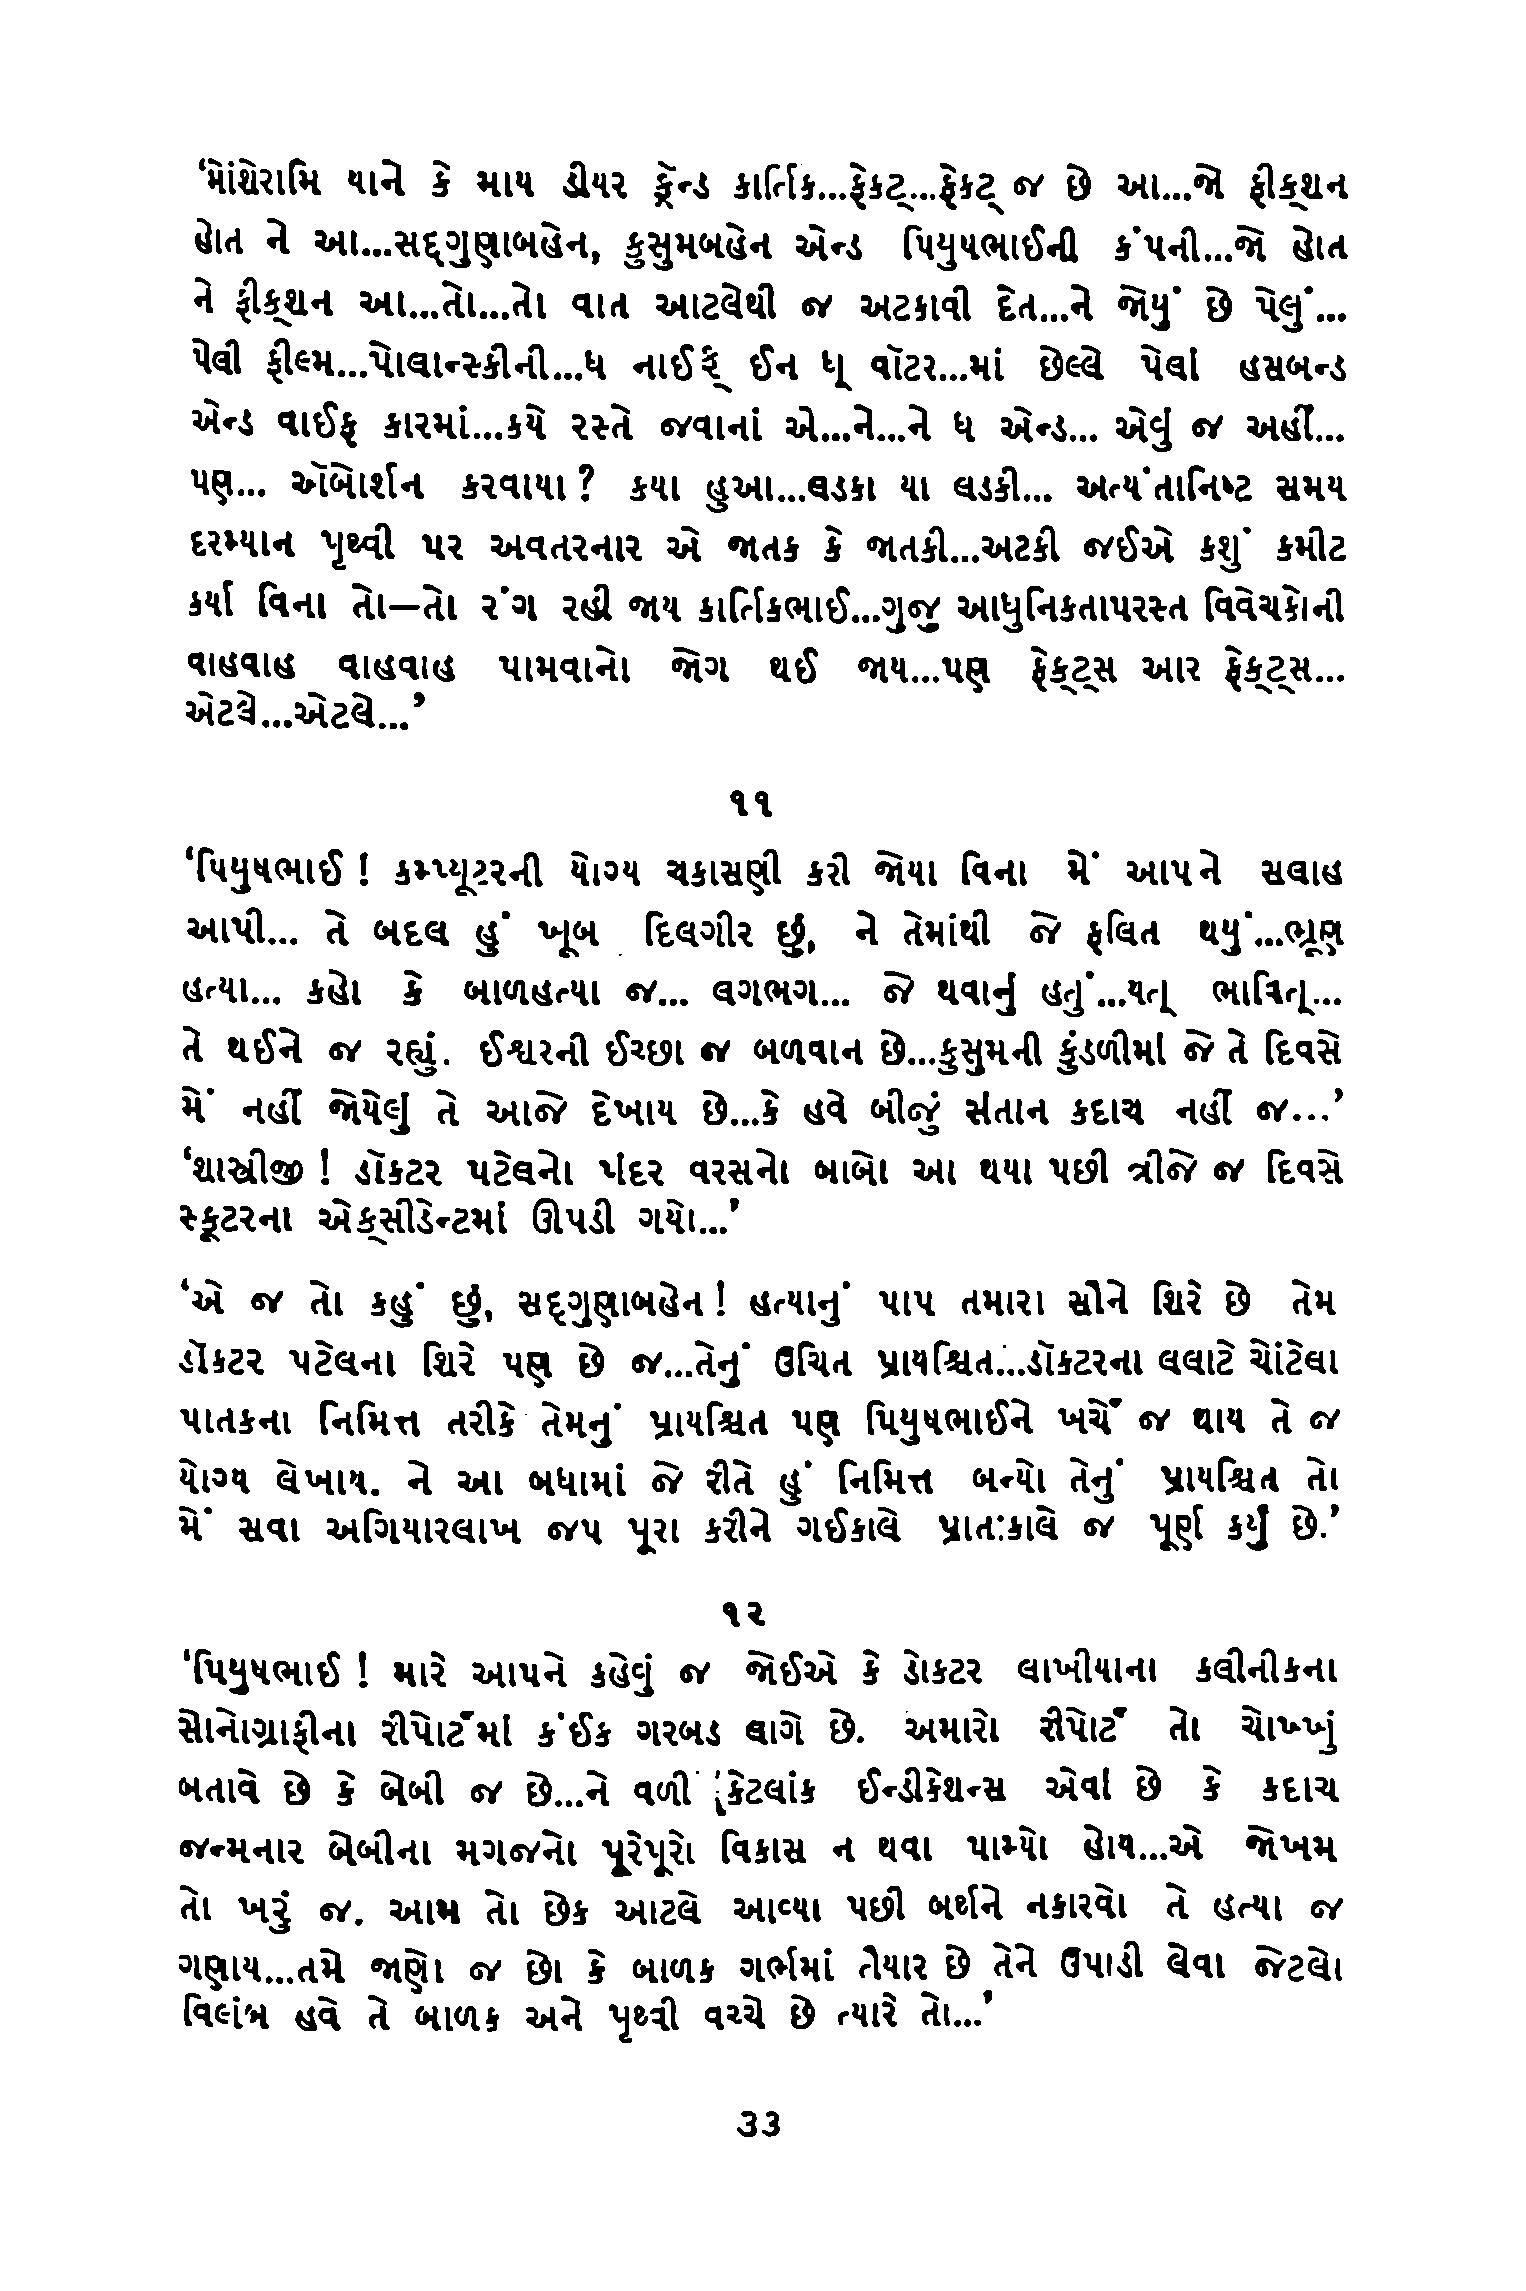 ‘મોંશેરામિ યાને કે માય ડીયર ફ્રૅન્ડ કાર્તિક...ફેકટ્...ફેકટ્ જ છે આ...જો ફીક્શન
હોત ને આ...સદ્ગુણાબહેન, કુસુમબહેન એન્ડ પિયુષભાઈની કંપની...જો હોત
ને ફીક્શન આ...તો...તો વાત આટલેથી જ અટકાવી દેત...ને જોયું છે પેલું...
પેલી ફીલ્મ...પોલાન્સ્કીની...ધ નાઈફ્ ઈન ધ્ વૉટર...માં છેલ્લે પેલાં હસબન્ડ
એન્ડ વાઈફ કારમાં...કયે રસ્તે જવાનાં એ...ને...ને ધ એન્ડ... એવું જ અહીં...
પણ... ઍબોર્શન કરવાયા? કયા હુઆ...લડકા યા લડકી... અત્યંતાનિષ્ટ સમય
દરમ્યાન પૃથ્વી પર અવતરનાર એ જાતક કે જાતકી...અટકી જઈએ કશું કમીટ
કર્યા વિના તો—તો રંગ રહી જાય કાર્તિકભાઈ...ગુજુ આધુનિકતાપરસ્ત વિવેચકોની
વાહવાહ વાહવાહ પામવાનો જોગ થઈ જાય...પણ ફેક્ટ્સ આર ફેક્ટ્સ...
એટલે...એટલે...’
૧૧
‘પિયુષભાઈ! કમ્પ્યૂટરની યોગ્ય ચકાસણી કરી જોયા વિના મેં આપને સલાહ
આપી... તે બદલ હું ખૂબ દિલગીર છું, ને તેમાંથી જે ફલિત થયું...ભ્રૂણ
હત્યા... કહો કે બાળહત્યા જ... લગભગ... જે થવાનું હતું...યત્ ભાવિત્...
તે થઈને જ રહ્યું. ઈશ્વરની ઈચ્છા જ બળવાન છે...કુસુમની કુંડળીમાં જે તે દિવસે
મેં નહીં જોયેલું તે આજે દેખાય છે...કે હવે બીજું સંતાન કદાચ નહીં જ...’
‘શાસ્ત્રીજી! ડૉકટર પટેલનો પંદર વરસનો બાબો આ થયા પછી ત્રીજે જ દિવસે
સ્કૂટરના એક્સીડેન્ટમાં ઊપડી ગયો...’
‘એ જ તો કહું છું, સદ્ગુણાબહેન! હત્યાનું પાપ તમારા સૌને શિરે છે તેમ
ડૉકટર પટેલના શિરે પણ છે જ...તેનું ઉચિત પ્રાયશ્ચિત...ડૉકટરના લલાટે ચોંટેલા
પાતકના નિમિત્ત તરીકે તેમનું પ્રાયશ્ચિત પણ પિયુષભાઈને ખર્ચે જ થાય તે જ
યોગ્ય લેખાય. ને આ બધામાં જે રીતે હું નિમિત્ત બન્યો તેનું પ્રાયશ્ચિત તો
મેં સવા અગિયારલાખ જપ પૂરા કરીને ગઈકાલે પ્રાતઃકાલે જ પૂર્ણ કર્યું છે.’
૧૨
‘પિયુષભાઈ! મારે આપને કહેવું જ જોઈએ કે ડોકટર લાખીયાના કલીનીકના
સોનોગ્રાફીના રીપોર્ટમાં કંઈક ગરબડ લાગે છે. અમારો રીપોર્ટ તો ચોખ્ખું
બતાવે છે કે બેબી જ છે...ને વળી કેટલાંક ઈન્ડીકેશન્સ એવાં છે કે કદાચ
જન્મનાર બેબીના મગજનો પૂરેપૂરો વિકાસ ન થવા પામ્યો હોય...એ જોખમ
તો ખરું જ. આમ તો છેક આટલે આવ્યા પછી બર્થને નકારવો તે હત્યા જ
ગણાય...તમે જાણો જ છો કે બાળક ગર્ભમાં તૈયાર છે તેને ઉપાડી લેવા જેટલો
વિલંબ હવે તે બાળક અને પૃથ્વી વચ્ચે છે ત્યારે તો...’
૩૩